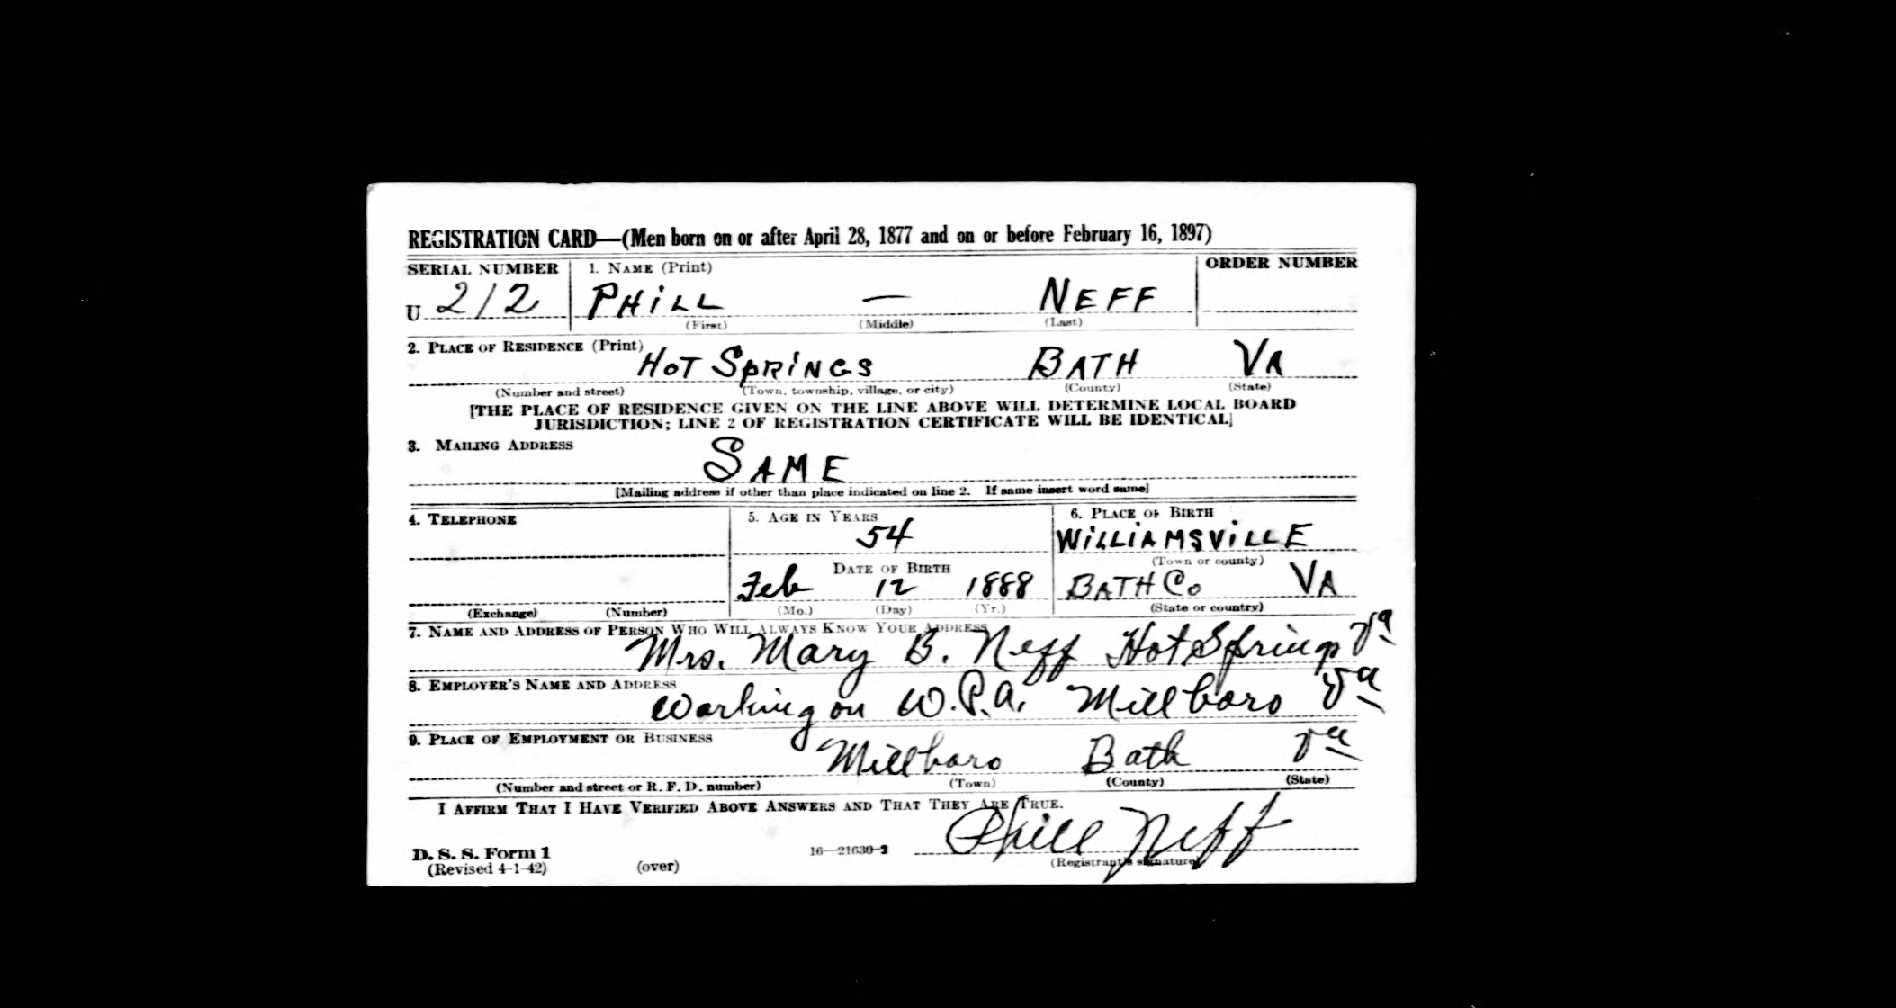 REGISTRATION CARD—(Men born on or after April 28, 1877 and on or before February 16, 1897)
SERIAL NUMBER 1. NAME (Print) ORDER NUMBER
U 212 PHILL — NEFF
(First) (Middle) (Last)
2. PLACE OF RESIDENCE (Print)
HOT SPRINGS BATH VA
(Number and street) (Town, township, village, or city) (County) (State)
[THE PLACE OF RESIDENCE GIVEN ON THE LINE ABOVE WILL DETERMINE LOCAL BOARD
JURISDICTION; LINE 2 OF REGISTRATION CERTIFICATE WILL BE IDENTICAL]
3. MAILING ADDRESS
SAME
[Mailing address if other than place indicated on line 2. If same insert word same]
4. TELEPHONE 5. AGE IN YEARS 6. PLACE OF BIRTH
54 WILLIAMSVILLE
DATE OF BIRTH (Town or county)
Feb 12 1888 BATH CO VA
(Exchange) (Number) (Mo.) (Day) (Yr.) (State or country)
7. NAME AND ADDRESS OF PERSON WHO WILL ALWAYS KNOW YOUR ADDRESS
Mrs. Mary B. Neff Hot Springs Va
8. EMPLOYER'S NAME AND ADDRESS
Working on W.P.A. Millboro Va
9. PLACE OF EMPLOYMENT OR BUSINESS
Millboro Bath Va
(Number and street or R. F. D. number) (Town) (County) (State)
I AFFIRM THAT I HAVE VERIFIED ABOVE ANSWERS AND THAT THEY ARE TRUE.
Phill Neff
D. S. S. Form 1 16—21630-2
(Revised 4-1-42) (over) (Registrant's signature)